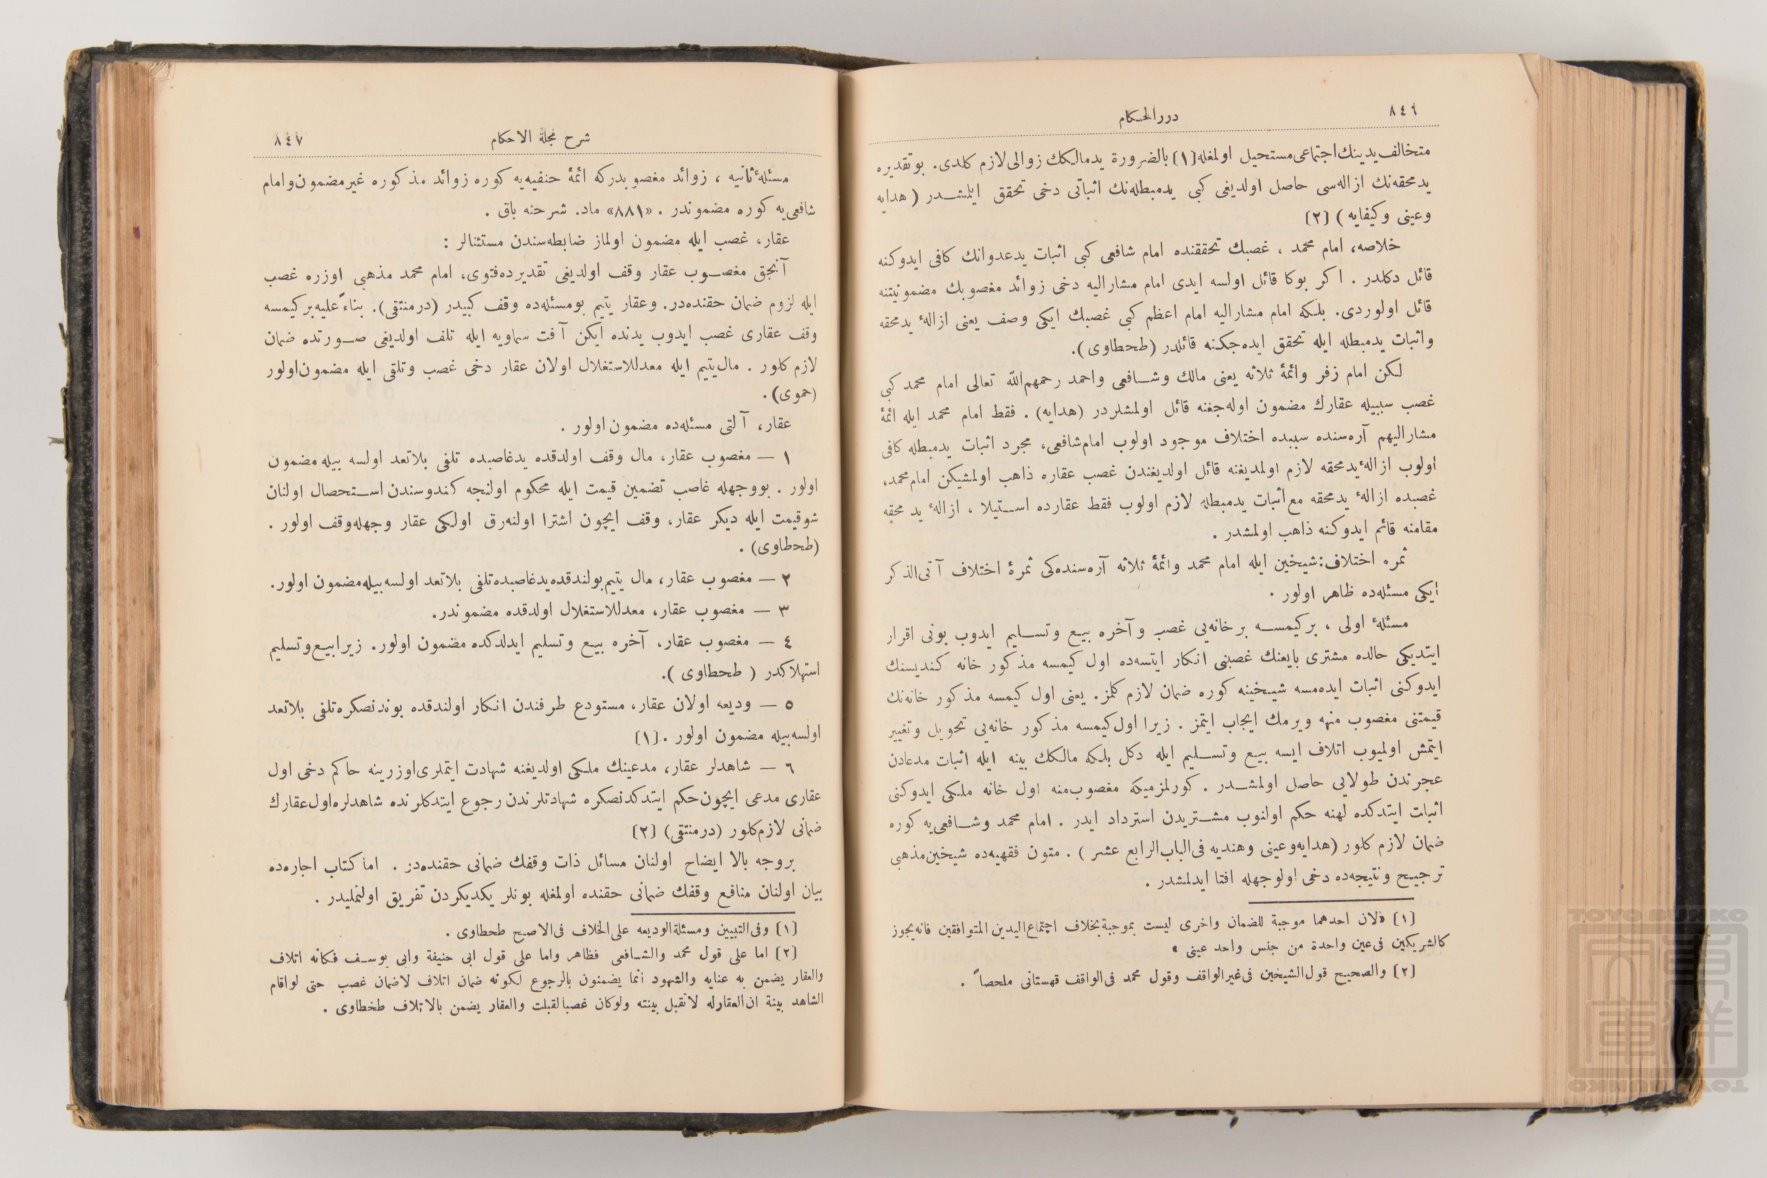 ٨٤٦
دررالحكام
متخالف يدينك اجتماعى مستحيل اولمغله [١] بالضرورة يدمالكك زوالى لازم كلدى. بو تقديره
يدمحقه‌نك ازاله‌سى حاصل اولديغى كبى يدمبطله‌نك اثباتى دخى تحقق ايتمشدر (هدايه
وعينى وكفايه) [٢]
خلاصه، امام محمد، غصبك تحققنده امام شافعى كبى اثبات يدعدوانك كافى ايدوكنه
قائل دكلدر. اكر بوكا قائل اولسه ايدى امام مشاراليه دخى زوائد مغصوبك مضمونيتنه
قائل اولوردى. بلكه امام مشاراليه امام اعظم كبى غصبك ايكى وصف يعنى ازالهٔ يدمحقه
واثبات يدمبطله ايله تحقق ايده‌جكنه قائلدر (طحطاوى).
لكن امام زفر وائمهٔ ثلاثه يعنى مالك وشافعى واحمد رحمهم الله تعالى امام محمد كبى
غصب سببيله عقارك مضمون اوله‌جغنه قائل اولمشلردر (هدايه). فقط امام محمد ايله ائمهٔ
مشاراليهم آره‌سنده سببده اختلاف موجود اولوب امام شافعى، مجرد اثبات يدمبطله كافى
اولوب ازالهٔ يدمحقه لازم اولمديغنه قائل اولديغندن غصب عقاره ذاهب اولمشيكن امام محمد،
غصبده ازالهٔ يدمحقه مع اثبات يدمبطله لازم اولوب فقط عقارده استيلا، ازالهٔ يد محقه
مقامنه قائم ايدوكنه ذاهب اولمشدر.
ثمره اختلاف: شيخين ايله امام محمد وائمهٔ ثلاثه آره‌سنده‌كى ثمرهٔ اختلاف آتى‌الذكر
ايكى مسئله‌ده ظاهر اولور.
مسئلهٔ اولى، بركيمسه بر خانه‌يى غصب و آخره بيع وتسليم ايدوب بونى اقرار
ايتديكى حالده مشترى بايعنك غصبنى انكار ايتسه‌ده اول كيمسه مذكور خانه كنديسنك
ايدوكنى اثبات ايده‌مسه شيخينه كوره ضمان لازم كلمز. يعنى اول كيمسه مذكور خانه‌نك
قيمتنى مغصوب منهه ويرمك ايجاب ايتمز. زيرا اول كيمسه مذكور خانه‌يى تحويل وتغيير
ايتمش اولميوب اتلاف ايسه بيع وتسليم ايله دكل بلكه مالكك بينه ايله اثبات مدعادن
عجزندن طولايى حاصل اولمشدر. كورلمزميكه مغصوب‌منه اول خانه ملكى ايدوكنى
اثبات ايتدكده لهنه حكم اولنوب مشتريدن استرداد ايدر. امام محمد وشافعى‌يه كوره
ضمان لازم كلور (هدايه وعينى وهنديه فى‌الباب الرابع عشر). متون فقهيه‌ده شيخين مذهبى
ترجيح ونتيجه‌ده دخى اولوجهله افتا ايدلمشدر.
[١] فلان احدهما موجبة للضمان واخرى ليست بموجبة بخلاف اجتماع اليدين المتوافقين فانه يجوز
كالشريكين فى عين واحدة من جنس واحد عينى.
[٢] والصحيح قول الشيخين فى غير الواقف وقول محمد فى الواقف قهستانى ملخصاً.
شرح مجلة الاحكام
٨٤٧
مسئلهٔ ثانيه، زوائد مغصوبدركه ائمهٔ حنفيه‌يه كوره زوائد مذكوره غيرمضمون وامام
شافعى‌يه كوره مضموندر. «٨٨١» ماد. شرحنه باق.
عقار، غصب ايله مضمون اولماز ضابطه‌سندن مستثنالر:
آنجق مغصوب عقار وقف اولديغى تقديرده فتوى، امام محمد مذهبى اوزره غصب
ايله لزوم ضمان حقنده‌در. وعقار يتيم بومسئله‌ده وقف كبيدر (درمنتقى). بناءً عليه بركيمسه
وقف عقارى غصب ايدوب يدنده ايكن آفت سماويه ايله تلف اولديغى صورتده ضمان
لازم كلور. مال يتيم ايله معدللاستغلال اولان عقار دخى غصب وتلقى ايله مضمون اولور
(حموى).
عقار، آلتى مسئله‌ده مضمون اولور.
١ — مغصوب عقار، مال وقف اولدقده يدغاصبده تلفى بلاتعد اولسه بيله مضمون
اولور. بووجهله غاصب تضمين قيمت ايله محكوم اولنجه كندوسندن استحصال اولنان
شوقيمت ايله ديكر عقار، وقف ايچون اشترا اولنه‌رق اولكى عقار وجهله وقف اولور.
(طحطاوى).
٢ — مغصوب عقار، مال يتيم بولندقده يدغاصبده تلفى بلاتعد اولسه بيله مضمون اولور.
٣ — مغصوب عقار، معدللاستغلال اولدقده مضموندر.
٤ — مغصوب عقار، آخره بيع وتسليم ايدلدكده مضمون اولور. زيرا بيع وتسليم
استهلاكدر (طحطاوى).
٥ — وديعه اولان عقار، مستودع طرفندن انكار اولندقده بوندنصكره تلفى بلاتعد
اولسه بيله مضمون اولور. [١]
٦ — شاهدلر عقار، مدعينك ملكى اولديغنه شهادت ايتملرى اوزرينه حاكم دخى اول
عقارى مدعى ايچون حكم ايتدكدنصكره شهادتلرندن رجوع ايتدكلرنده شاهدلره اول عقارك
ضمانى لازم كلور (درمنتقى) [٢]
بروجه بالا ايضاح اولنان مسائل ذات وقفك ضمانى حقنده‌در. اما كتاب اجاره‌ده
بيان اولنان منافع وقفك ضمانى حقنده اولمغله بونلر يكديكردن تفريق اولنمليدر.
[١] وفى التبيين ومسئلة الوديعه على الخلاف فى الاصح طحطاوى.
[٢] اما على قول محمد والشافعى فظاهر واما على قول ابى حنيفة وابى يوسف فكانه اتلاف
والعقار يضمن به عنايه والشهود انما يضمنون بالرجوع لكونه ضمان اتلاف لاضمان غصب حتى لواقام
الشاهد بينة ان العقارله لاتقبل بينته ولوكان غصبا لقبلت والعقار يضمن بالاتلاف طحطاوى.
TOYO BUNKO